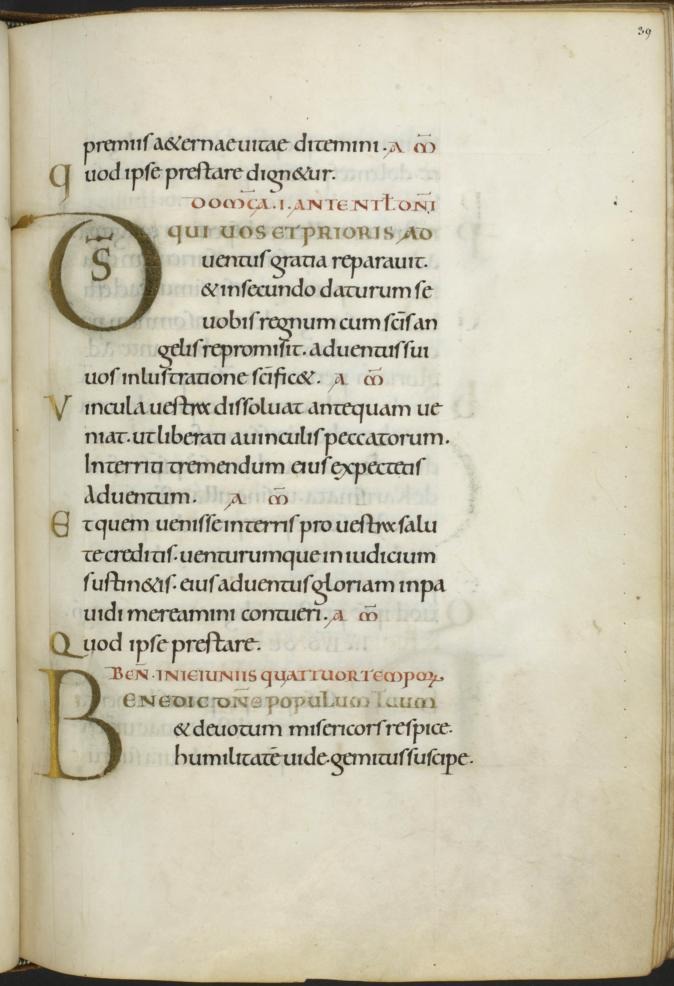 39
premiis a&ernae uitae ditemini. A m̅
quod ipse prestare dign&ur.
DOM̅CA. I. ANTE NT̅L DN̅I
DS̅ QUI UOS ET PRIORIS AD
uentus gratia reparauit.
& in secundo daturum se
uobis regnum cum sc̅is an
gelis repromisit. aduentus sui
uos inlustratione sc̅ific&. A m̅
Vincula uestra dissoluat antequam ue
niat. ut liberati a uinculis peccatorum.
Interriti tremendum eius expectetis
Aduentum. A m̅
Et quem uenisse in terris pro uestra salu
te creditis. uenturumque in iudicium
sustin&is. eius aduentus gloriam inpa
uidi mereamini contueri. A m̅
Quod ipse prestare.
BEN̅. IN IEIUNIIS QUATTUOR TEMPOꝝ
BENEDIC DN̅E POPULUM TUUM
& deuotum misericors respice.
humilitate̅ uide. gemitus suscipe.